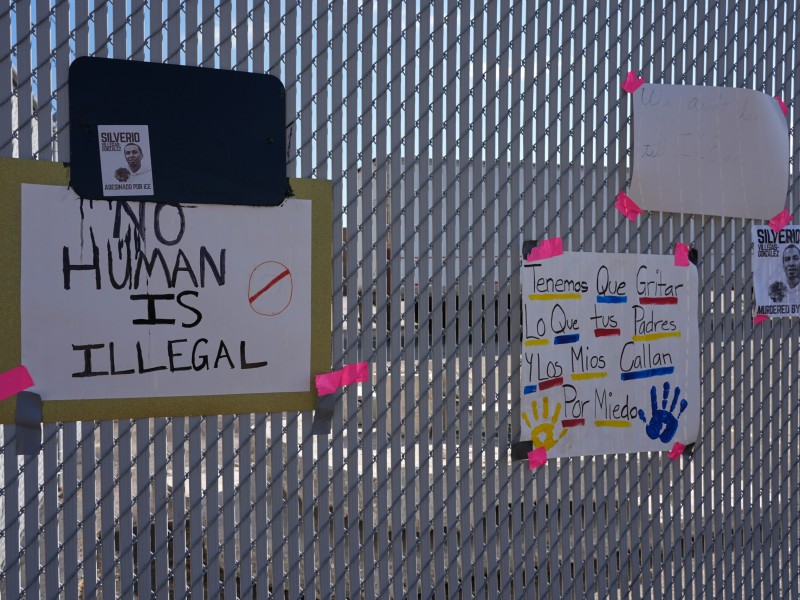 SILVERIO
VILLEGAS
GONZALEZ
ASESINADO POR ICE
NO
HUMAN
IS
ILLEGAL
Tenemos Que Gritar
Lo Que tus Padres
Y Los Mios Callan
Por Miedo
SILVERIO
VILLEGAS
GONZALEZ
MURDERED BY